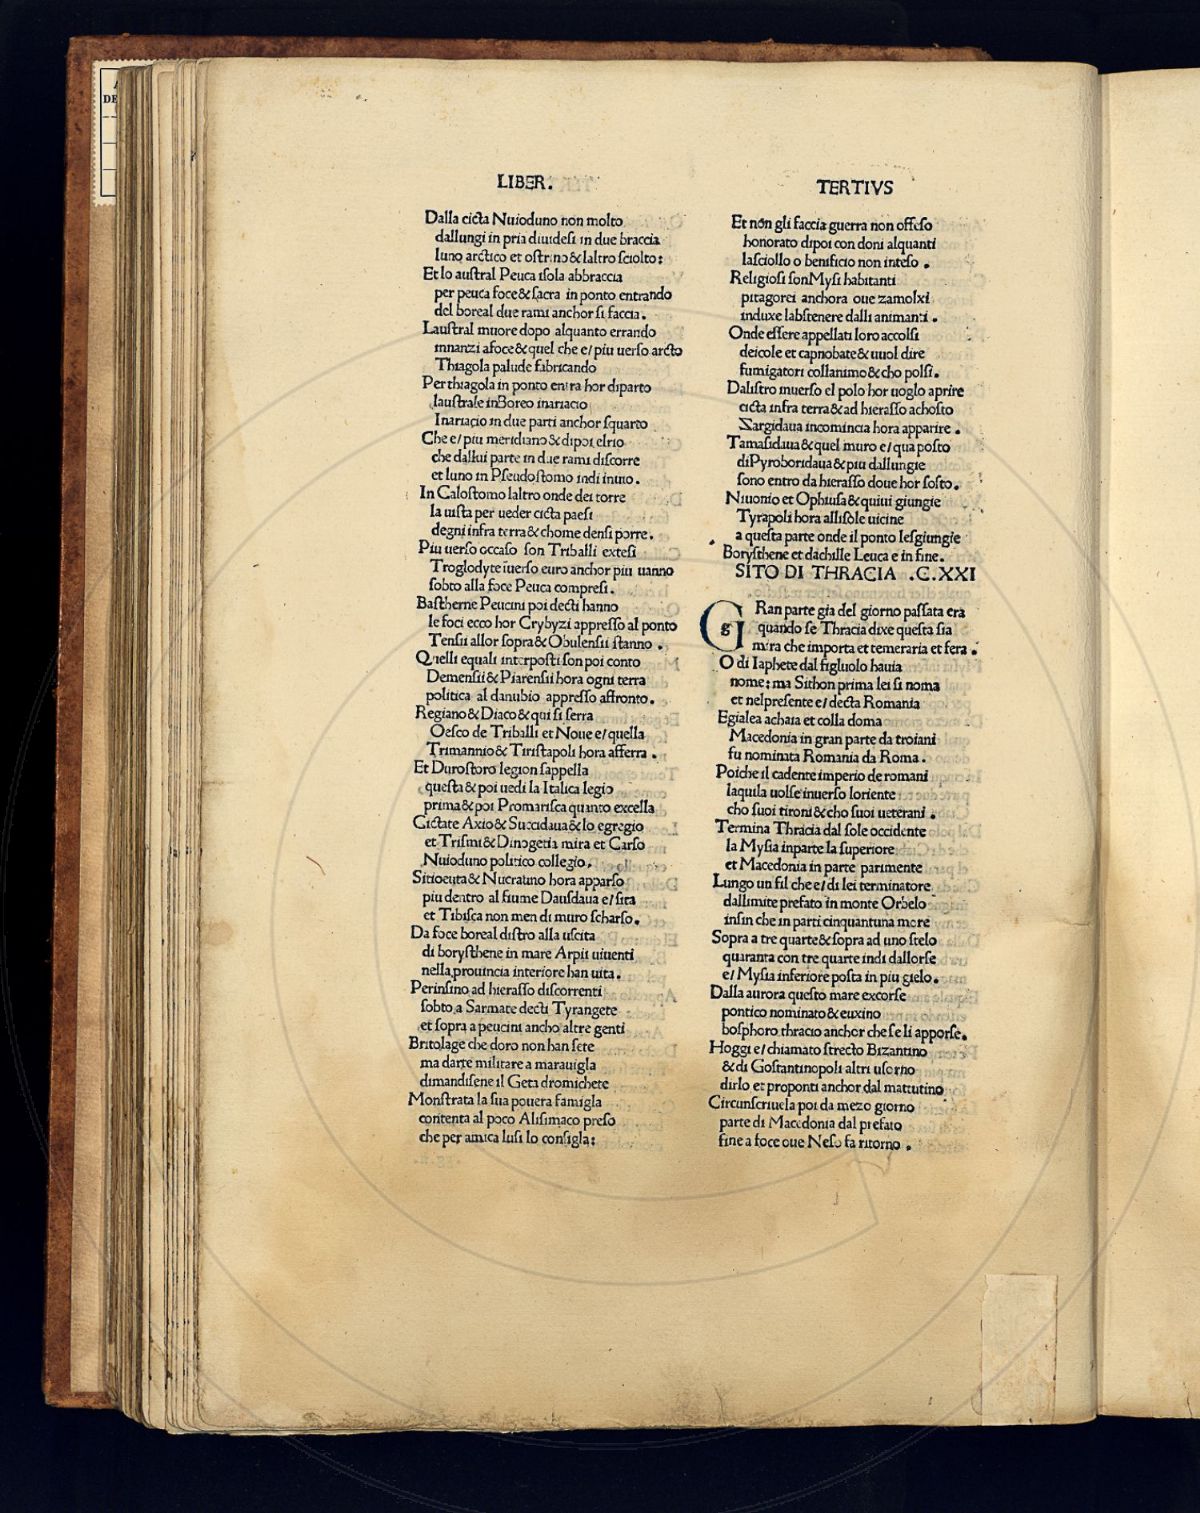 LIBER.
Dalla cicta Nuioduno non molto
dallungi in pria diuidesi in due braccia
luno arctico et ostrino & laltro sciolto:
Et lo austral Peuca isola abbraccia
per peuca foce & sacra in ponto entrando
del boreal due rami anchor si faccia.
Laustral muore dopo alquanto errando
innanzi afoce & quel che e/ piu uerso arcto
Thiagola palude fabricando
Per thiagola in ponto entra hor diparto
laustrale inBoreo inariacio
Inariacio in due parti anchor squarto
Che e/ piu meridiano & dipoi elrio
che dallui parte in due rami discorre
et luno in Pseudostomo indi inuio.
In Calostomo laltro onde dei torre
la uista per ueder cicta paesi
degni infra terra & chome densi porre.
Piu uerso occaso son Triballi extesi
Troglodyte iuerso euro anchor piu uanno
sobto alla foce Peuca compresi.
Bastherne Peucini poi decti hanno
le foci ecco hor Crybyzi appresso al ponto
Tensii allor sopra & Obulensii stanno.
Quelli equali interposti son poi conto
Demensii & Piarensii hora ogni terra
politica al danubio appresso affronto.
Regiano & Diaco & qui si serra
Oesco de Triballi et Noue e/ quella
Trimannio & Tiristapoli hora afferra.
Et Durostoro legion sappella
questa & poi uedi la Italica legio
prima & poi Promarisca quanto excella
Cictate Axio & Succidaua & lo egregio
et Trismi & Dinogetia mira et Carso
Nuioduno politico collegio.
Sitioeuta & Nucratino hora apparso
piu dentro al fiume Dausdaua e/ sita
et Tibisca non men di muro scharso.
Da foce boreal distro alla uscita
di borysthene in mare Arpii uiuenti
nella prouincia interiore han uita.
Perinsino ad hierasso discorrenti
sobto a Sarmate decti Tyrangete
et sopra a peucini ancho altre genti
Britolage che doro non han sete
ma darte militare a marauigla
dimandisene il Geta dromichete
Monstrata la sua pouera famigla
contenta al poco Alisimaco preso
che per amica lusi lo consigla:
TERTIVS
Et non gli faccia guerra non offeso
honorato dipoi con doni alquanti
lasciollo o benificio non inteso.
Religiosi son Mysi habitanti
pitagorei anchora oue zamolxi
induxe labstenere dalli animanti.
Onde essere appellati loro accolsi
deicole et capnobate & uuol dire
fumigatori collanimo & cho polsi.
Dalistro inuerso el polo hor uoglo aprire
cicta infra terra & ad hierasso achosto
Zargidaua incomincia hora apparire.
Tamasidaua & quel muro e/ qua posto
di Pyroboridaua & piu dallungie
sono entro da hierasso doue hor sosto.
Niuonio et Ophiusa & quiui giungie
Tyrapoli hora allisole uicine
a questa parte onde il ponto lesgiungie
Borysthene et dachille Leuca e in fine.
SITO DI THRACIA .C.XXI
GRan parte gia del giorno passata era
quando se Thracia dixe questa sia
mira che importa et temeraria et fera.
O di Iaphete dal figluolo hauia
nome: ma Sithon prima lei si noma
et nelpresente e/ decta Romania
Egialea achaia et colla doma
Macedonia in gran parte da troiani
fu nominata Romania da Roma.
Poiche il cadente imperio de romani
laquila uolse inuerso loriente
cho suoi tironi & cho suoi ueterani.
Termina Thracia dal sole occidente
la Mysia inparte la superiore
et Macedonia in parte parimente
Lungo un fil che e/ di lei terminatore
dallimite prefato in monte Orbelo
insin che in parti cinquantuna more
Sopra a tre quarte & sopra ad uno stelo
quaranta con tre quarte indi dallorse
e/ Mysia inferiore posta in piu gielo.
Dalla aurora questo mare excorse
pontico nominato & euxino
bosphoro thracio anchor che se li apporse.
Hoggi e/ chiamato strecto Bizantino
& di Gostantinopoli altri usorno
dirlo et proponti anchor dal mattutino
Circunscriuela poi da mezo giorno
parte di Macedonia dal prefato
fine a foce oue Neso fa ritorno.